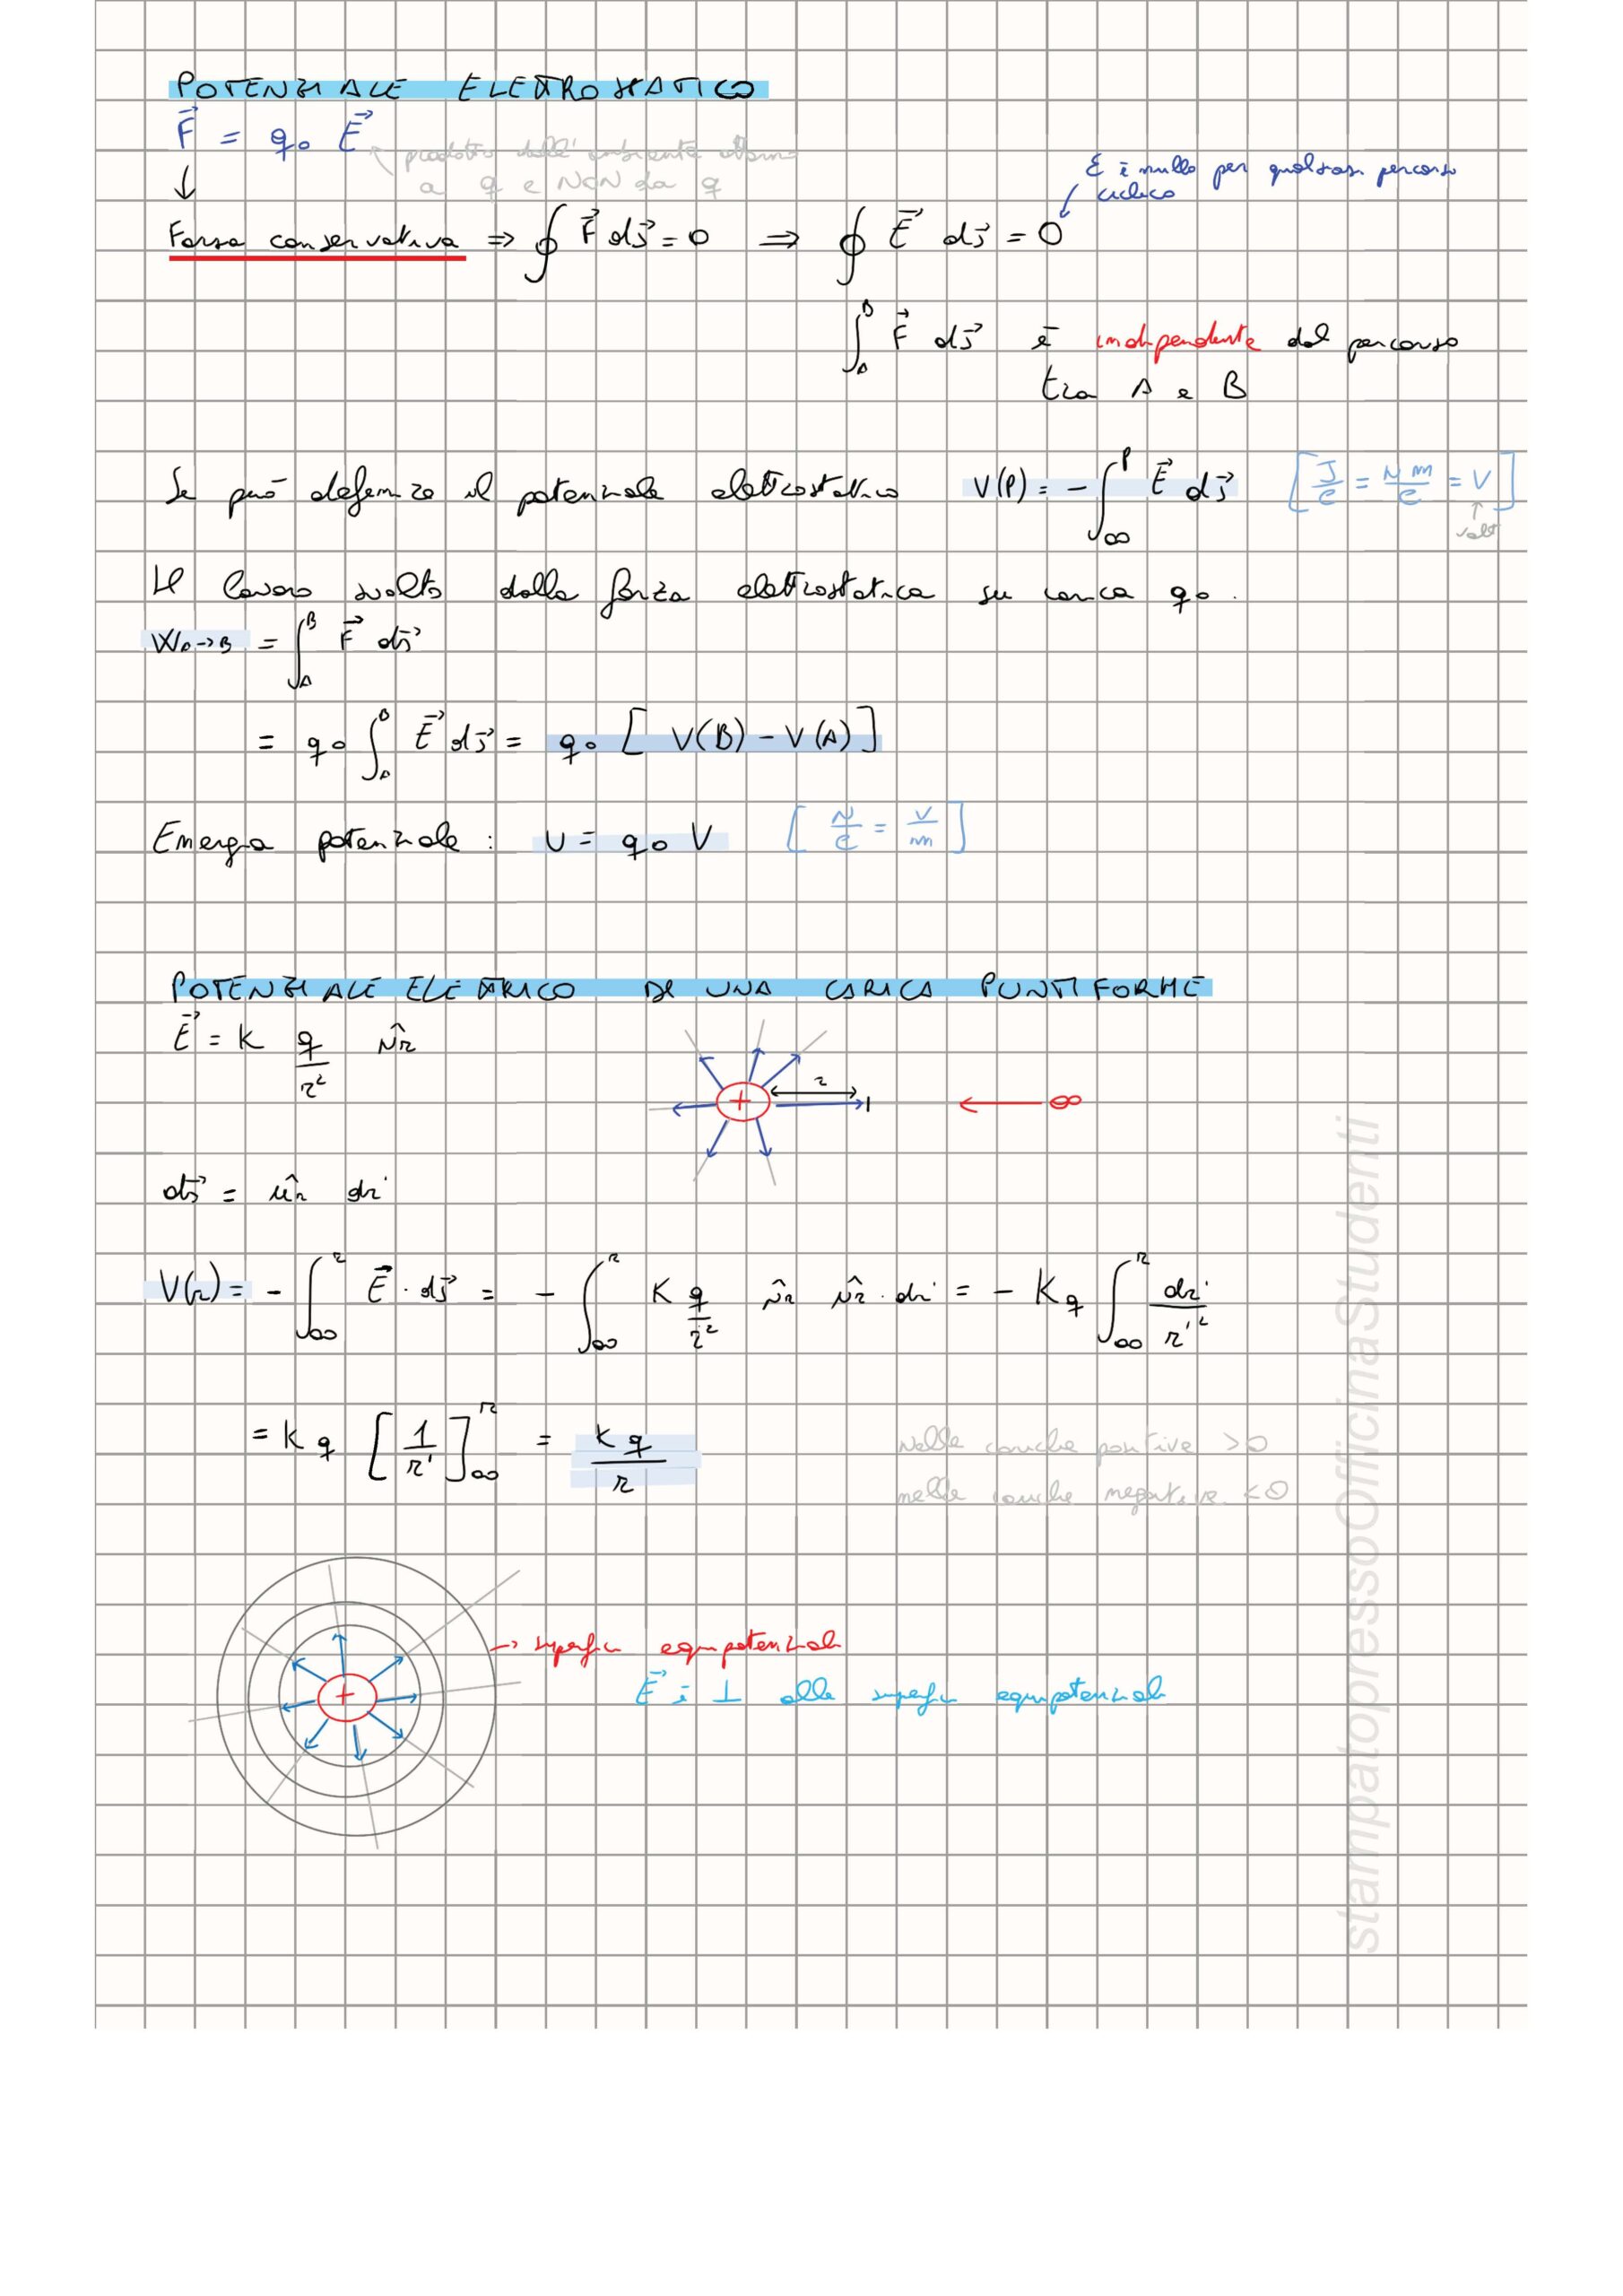 POTENZIALE ELETTROSTATICO
F⃗ = q₀ E⃗
prodotto dall'ambiente attorno
a q e NON da q
E è nullo per qualsiasi percorso
ciclico
Forza conservativa ⇒ ∮ F⃗ ds⃗ = 0 ⇒ ∮ E⃗ ds⃗ = 0
∫_A^B F⃗ ds⃗ è indipendente dal percorso
tra A e B
Se può definire il potenziale elettrostatico V(P) = - ∫_∞^P E⃗ ds⃗ [J/C = N m/C = V]
volt
Il lavoro svolto dalla forza elettrostatica su carica q₀.
W_A→B = ∫_A^B F⃗ ds⃗
= q₀ ∫_A^B E⃗ ds⃗ = q₀ [V(B) - V(A)]
Energia potenziale: U = q₀ V [N/C = V/m]
POTENZIALE ELETTRICO DI UNA CARICA PUNTIFORME
E⃗ = K q/r² ûr
+ r ∞
ds⃗ = ûr dr'
V(r) = - ∫_∞^r E⃗ · ds⃗ = - ∫_∞^r K q/r² ûr ûr · dr' = - Kq ∫_∞^r dr'/r'²
= K q [1/r']_∞^r = Kq/r
nelle cariche positive >0
nelle cariche negative <0
+ → superfici equipotenziali
E⃗ è ⊥ alle superfici equipotenziali
stampatopressoOfficinaStudenti